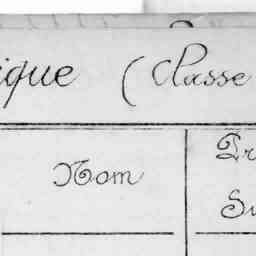 ique (Classe
Nom
Pr
Su